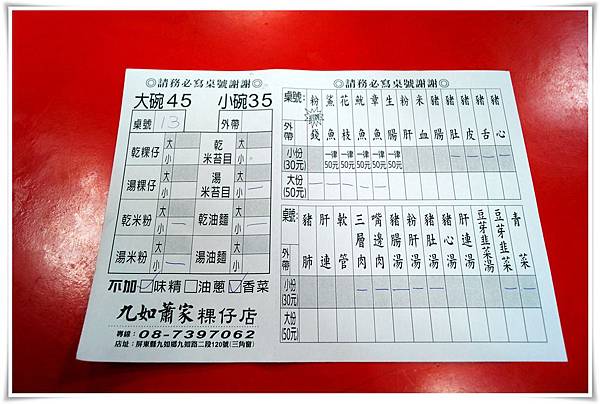 ◎請務必寫桌號謝謝◎
大碗45 小碗35
桌號 13 外帶
乾粿仔 大 小 乾米苔目 大 小
湯粿仔 大 小 湯米苔目 大 小
乾米粉 大 小 乾油麵 大 小
湯米粉 大 小 湯油麵 大 小
不加 味精 油蔥 香菜
九如蕭家粿仔店
專線：08-7397062
店址：屏東縣九如鄉九如路二段120號(三角窗)
◎請務必寫桌號謝謝◎
桌號： 外帶
粉錢
鯊魚
花枝
魷魚
章魚
生腸
粉肝
米血
豬腸
豬肚
豬皮
豬舌
豬心
小份(30元) 一律50元 一律50元 一律50元 一律50元 一律50元
大份(50元)
桌號： 外帶
豬肺
肝連
軟管
三層肉
嘴邊肉
豬腸湯
粉肝湯
豬肚湯
豬心湯
肝連湯
豆芽韭菜湯
豆芽韭菜
青菜
小份30元
大份(50元)